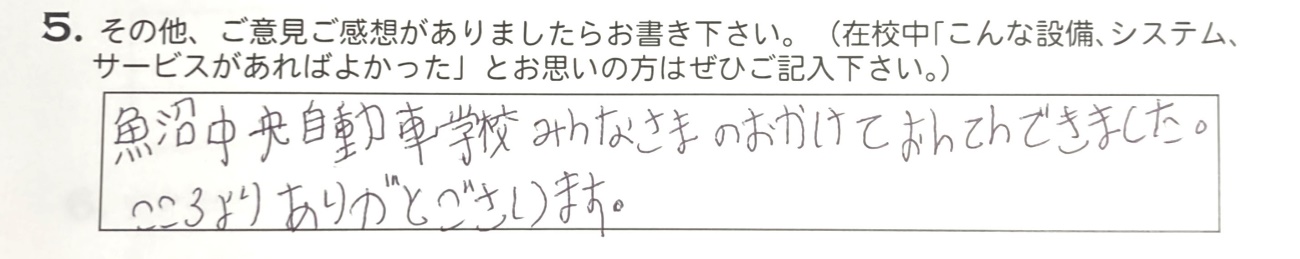 5. その他、ご意見ご感想がありましたらお書き下さい。（在校中「こんな設備、システム、
サービスがあればよかった」とお思いの方はぜひご記入下さい。）
魚沼中央自動車学校みんなさまのおかけておんてんできました。
こころよりありがとございます。